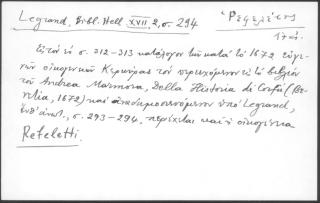 Legrand, Bibl. Hell. XVII, 2, σ. 294
Ῥεφελέτης
17 αἰ.
σ. 312-313 κατάλογον τῶν κατὰ τὸ 1672 εὐγε-
νῶν οἰκογενειῶν Κερκύρας τὸν περιεχόμενον εἰς τὸ βιβλίον
τοῦ Andrea Marmora, Della Historia di Corfù (Ve-
netia, 1672) καὶ ἀναδημοσιευόμενον ὑπὸ Legrand,
ἔνθ' ἀνωτ., σ. 293-294, περιέχεται καὶ ἡ οἰκογένεια
Refeletti.